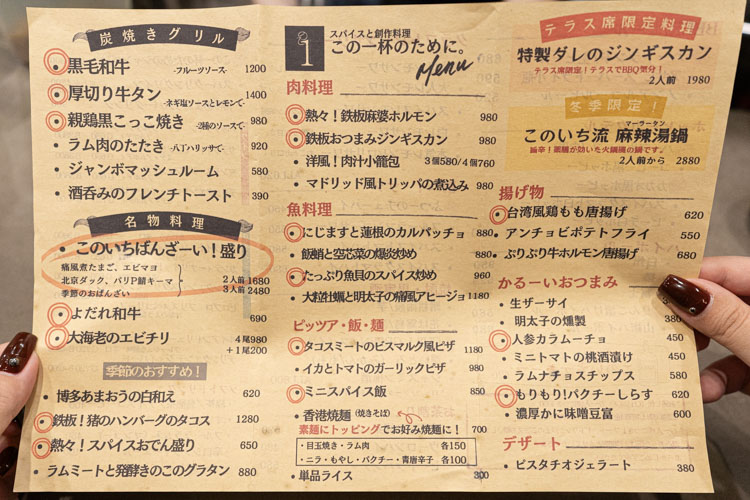 炭焼きグリル
黒毛和牛 -フルーツソース- 1200
厚切り牛タン -ネギ塩ソースとレモンで- 1400
親鶏黒こっこ焼き -2種のソースで- 980
・ラム肉のたたき -八丁ハリッサで- 920
・ジャンボマッシュルーム 580
・酒呑みのフレンチトースト 390
名物料理
・このいちばんざーい!盛り
痛風煮たまご、エビマヨ
北京ダック、パリP鯖キーマ 2人前 1680
季節のおばんざい 3人前 2480
・よだれ和牛 690
・大海老のエビチリ 4尾980
+1尾200
季節のおすすめ!
・博多あまおうの白和え 620
・鉄板!猪のハンバーグのタコス 1280
・熱々!スパイスおでん盛り 650
・ラムミートと発酵きのこのグラタン 880
1
スパイスと創作料理
この一杯のために。
Menu
肉料理
・熱々!鉄板麻婆ホルモン 980
・鉄板おつまみジンギスカン 980
・洋風!肉汁小籠包 3個580/4個760
・マドリッド風トリッパの煮込み 980
魚料理
・にじますと蓮根のカルパッチョ 880
・飯蛸と空芯菜の爆炎炒め 880
・たっぷり魚貝のスパイス炒め 960
・大粒牡蠣と明太子の痛風アヒージョ 1180
ピッツア・飯・麺
・タコスミートのビスマルク風ピザ 1180
・イカとトマトのガーリックピザ 980
・ミニスパイス飯 850
・香港焼麺(焼きそば)
素麺にトッピングでお好み焼麺に! 700
・目玉焼き・ラム肉 各150
・ニラ・もやし・パクチー・青唐辛子 各100
・単品ライス 300
テラス席限定料理
特製ダレのジンギスカン
テラス席限定!テラスでBBQ気分!
2人前 1980
冬季限定!
マーラータン
このいち流 麻辣湯鍋
旨辛!薬膳が効いた火鍋風の鍋です。
2人前から 2880
揚げ物
・台湾風鶏もも唐揚げ 620
・アンチョビポテトフライ 550
・ぷりぷり牛ホルモン唐揚げ 680
かるーいおつまみ
・生ザーサイ
・明太子の燻製 380
・人参カラムーチョ 450
・ミニトマトの桃酒漬け 450
・ラムナチョスチップス 580
・もりもり!パクチーしらす 650
・濃厚かに味噌豆富 600
デザート
・ピスタチオジェラート 380